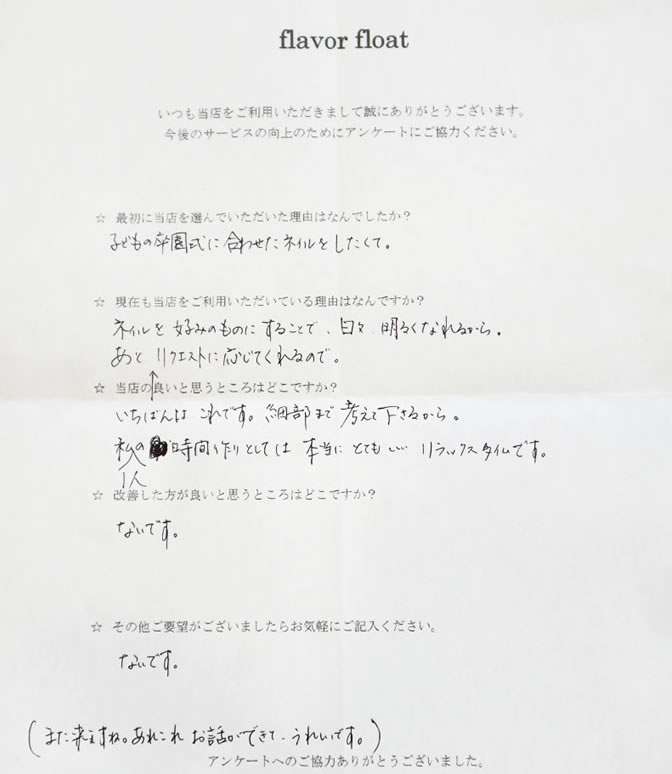 flavor float
いつも当店をご利用いただきまして誠にありがとうございます。
今後のサービスの向上のためにアンケートにご協力ください。
☆ 最初に当店を選んでいただいた理由はなんでしたか？
子どもの卒園式に合わせたネイルをしたくて。
☆ 現在も当店をご利用いただいている理由はなんですか？
ネイルを好みのものにすることで、日々、明るくなれるから。
あと リクエストに応じてくれるので。
☆ 当店の良いと思うところはどこですか？
いちばんは これです。細部まで考えて下さるから。
私の 時間作りとしては 本当に とても いい リラックスタイムです。
1人
☆ 改善した方が良いと思うところはどこですか？
ないです。
☆ その他ご要望がございましたらお気軽にご記入ください。
ないです。
(また来ますね。あれこれ お話ができて、うれしいです。)
アンケートへのご協力ありがとうございました。